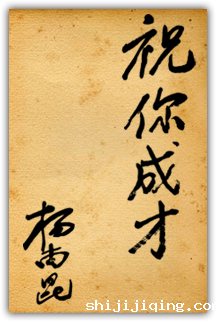 祝你成才
杨尚昆
shijijiqing.com